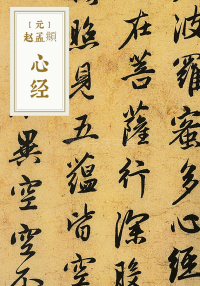 元
赵孟頫
心经
波羅蜜多心經
在菩薩行深般
照見五蘊皆空
異空空不